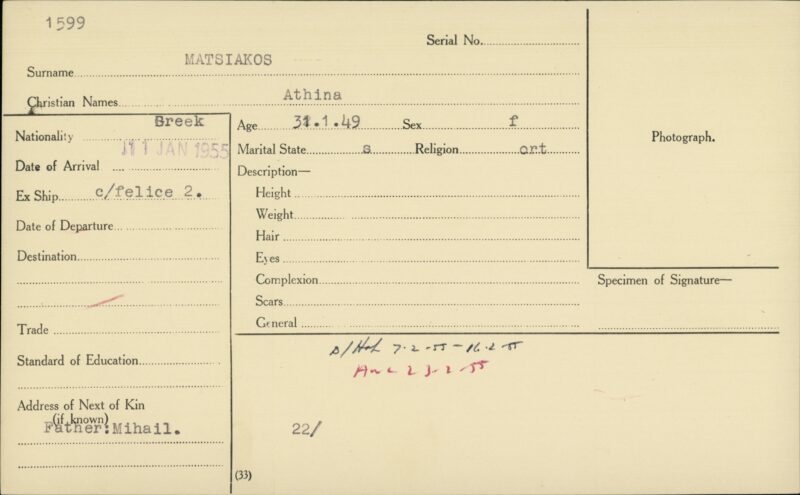 1599
Serial No.
MATSIAKOS
Surname
Christian Names Athina
Nationality Greek
Age 31.1.49 Sex f
11 JAN 1955
Marital State s Religion ort
Photograph.
Date of Arrival
Description—
Ex Ship c/felice 2.
Height
Weight
Date of Departure
Hair
Destination
Eyes
Complexion
Specimen of Signature—
Scars
General
Trade
7.2.55 - 16.2.55
Standard of Education
23.2.55
Address of Next of Kin
(if known)
Father:Mihail.
22/
(33)